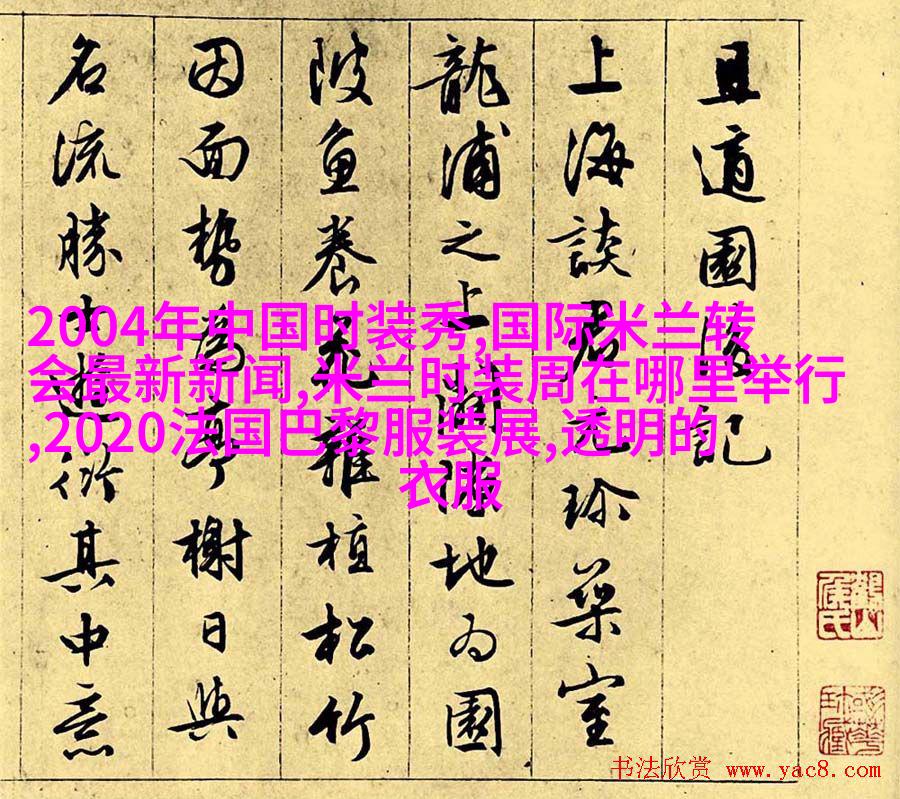 且適園後記
上海談君元珍築室
龍浦之上闢隙地為園
陂魚養花雜植松竹
因面勢為亭榭日與
名流勝士遊衍其中意
2004年中国时装秀,国际米兰转
会最新新闻,米兰时装周在哪里举行
,2020法国巴黎服装展,透明的
衣服
书法欣赏 www.yac8.com